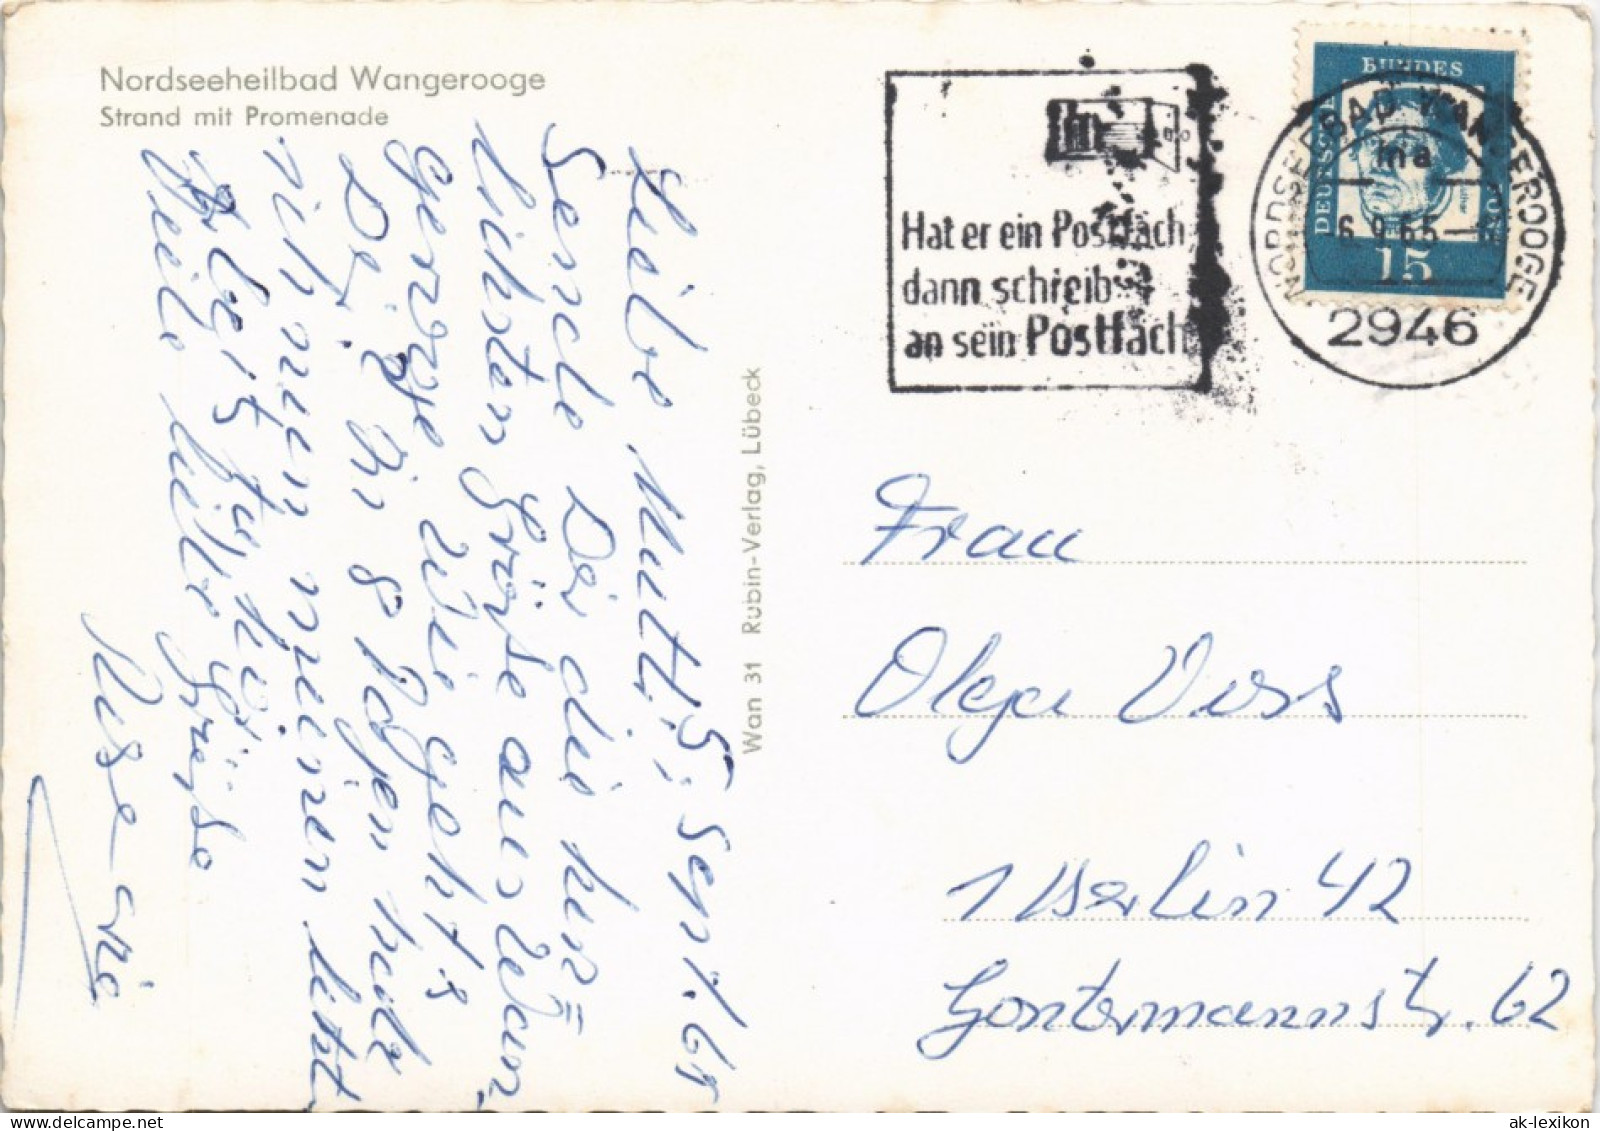 Nordseeheilbad Wangerooge
Strand mit Promenade
Liebe Mutti! 5. Sept. 65
Sende Dir die herz=
lichsten Grüße aus Wan=
gerooge. Wie geht's
Dir? In 8 Tagen habe
ich nun meinen
viele liebe Grüße
Wan 31 Rubin-Verlag, Lübeck
Hat er ein Postfach
dann schreib
an sein Postfach
DEUTSCHE
BUNDES
15
NORDSEEBAD WANGEROOGE
ma
6.9.65
2946
Frau
Olga Voss
1 Berlin 42
Gontermannstr. 62
ak-lexikon